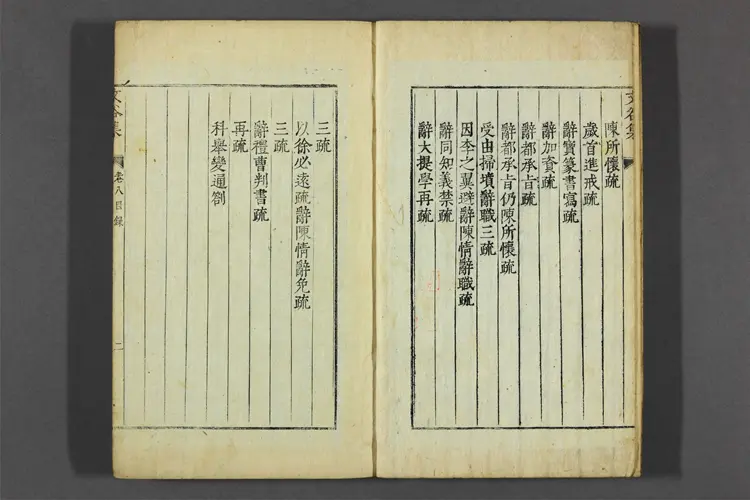 文谷集
陳所懷疏
歲首進戒疏
辭寶篆書寫疏
辭加資疏
辭都承旨疏
辭都承旨仍陳所懷疏
受由掃墳辭職三疏
因李之翼避辭陳情辭職疏
辭同知義禁疏
辭大提學再疏
三疏
以徐必遠疏辭陳情辭免疏
三疏
辭禮曹判書疏
再疏
科舉變通劄
文谷集
卷八目錄
二